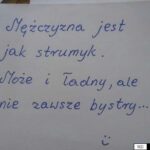 Mężczyzna jest
jak strumyk.
Może i ładny, ale
nie zawsze bystry...